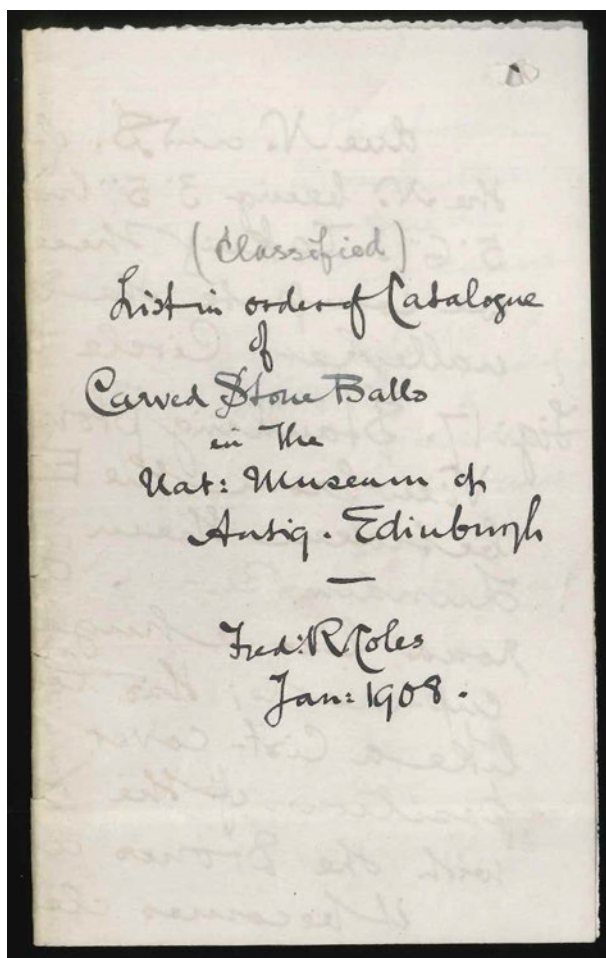 (Classified)
List in order of Catalogue
of
Carved Stone Balls
in the
Nat: Museum of
Antiq. Edinburgh
Fred: R Coles
Jan: 1908.